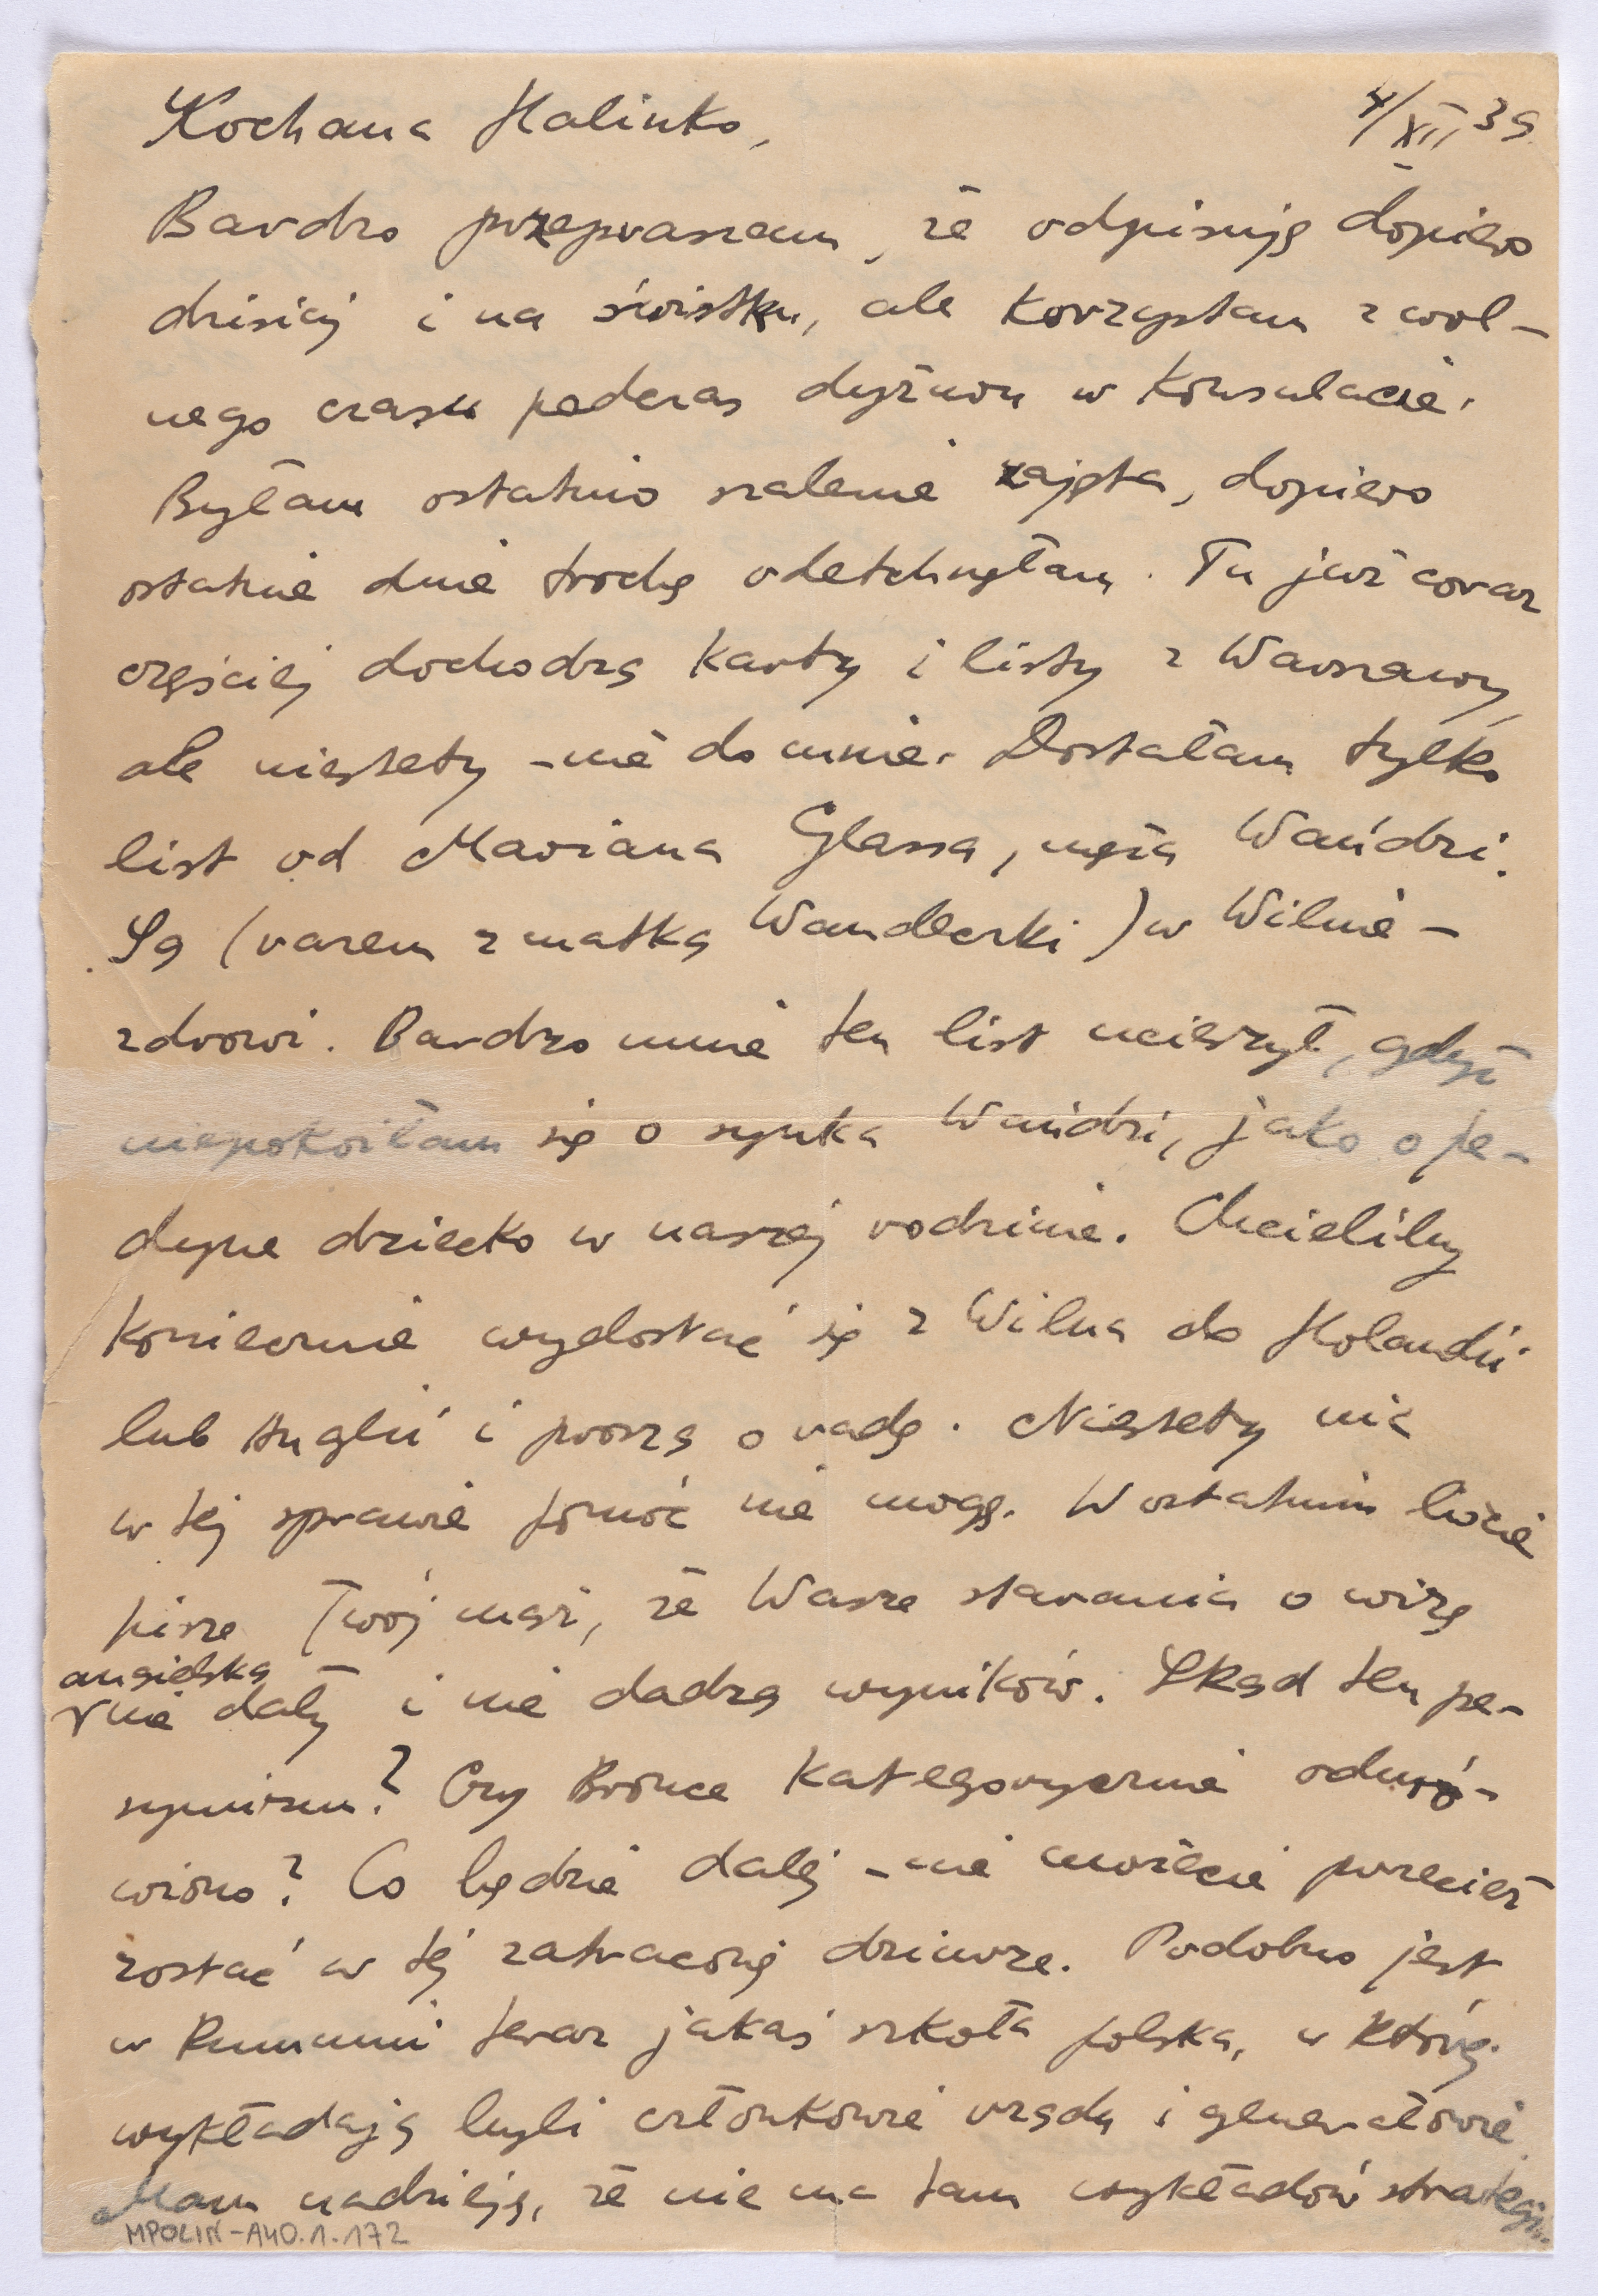 Kochana Halinko, 4/XII 39
Bardzo przepraszam, że odpisuję dopiero
dzisiaj i na świstku, ale korzystam z wol-
nego czasu podczas dyżuru w Konsulacie.
Byłam ostatnio szalenie zajęta, dopiero
ostatnie dnie trochę odetchnęłam. Tu już coraz
częściej dochodzą karty i listy z Warszawy,
ale niestety - nie do mnie. Dostałam tylko
list od Mariana Glassa, męża Wańdzi.
Są (razem z matką Wandeczki) w Wilnie -
zdrowi. Bardzo mnie ten list ucieszył, gdyż
niepokoiłam się o synka Wańdzi, jako o je-
dyne dziecko w naszej rodzinie. Chcieliby
koniecznie wydostać się z Wilna do Holandii
lub Anglii i proszą o radę. Niestety nic
w tej sprawie pomóc nie mogę. W ostatnim liście
pisze Twój mąż, że Wasze starania o wizę
angielską
nie dały i nie dadzą wyników. Skąd ten pe-
symizm? Czy Brönce kategorycznie odmó-
wiono? Co będzie dalej - nie możecie przecież
zostać w tej zatraconej dziurze. Podobno jest
w Rumunii teraz jakaś szkoła polska, w której
wykładają byli członkowie rządu i generałowie.
Mam nadzieję, że nie ma tam wykładów strategji.
MPOLIN-A40.1.172